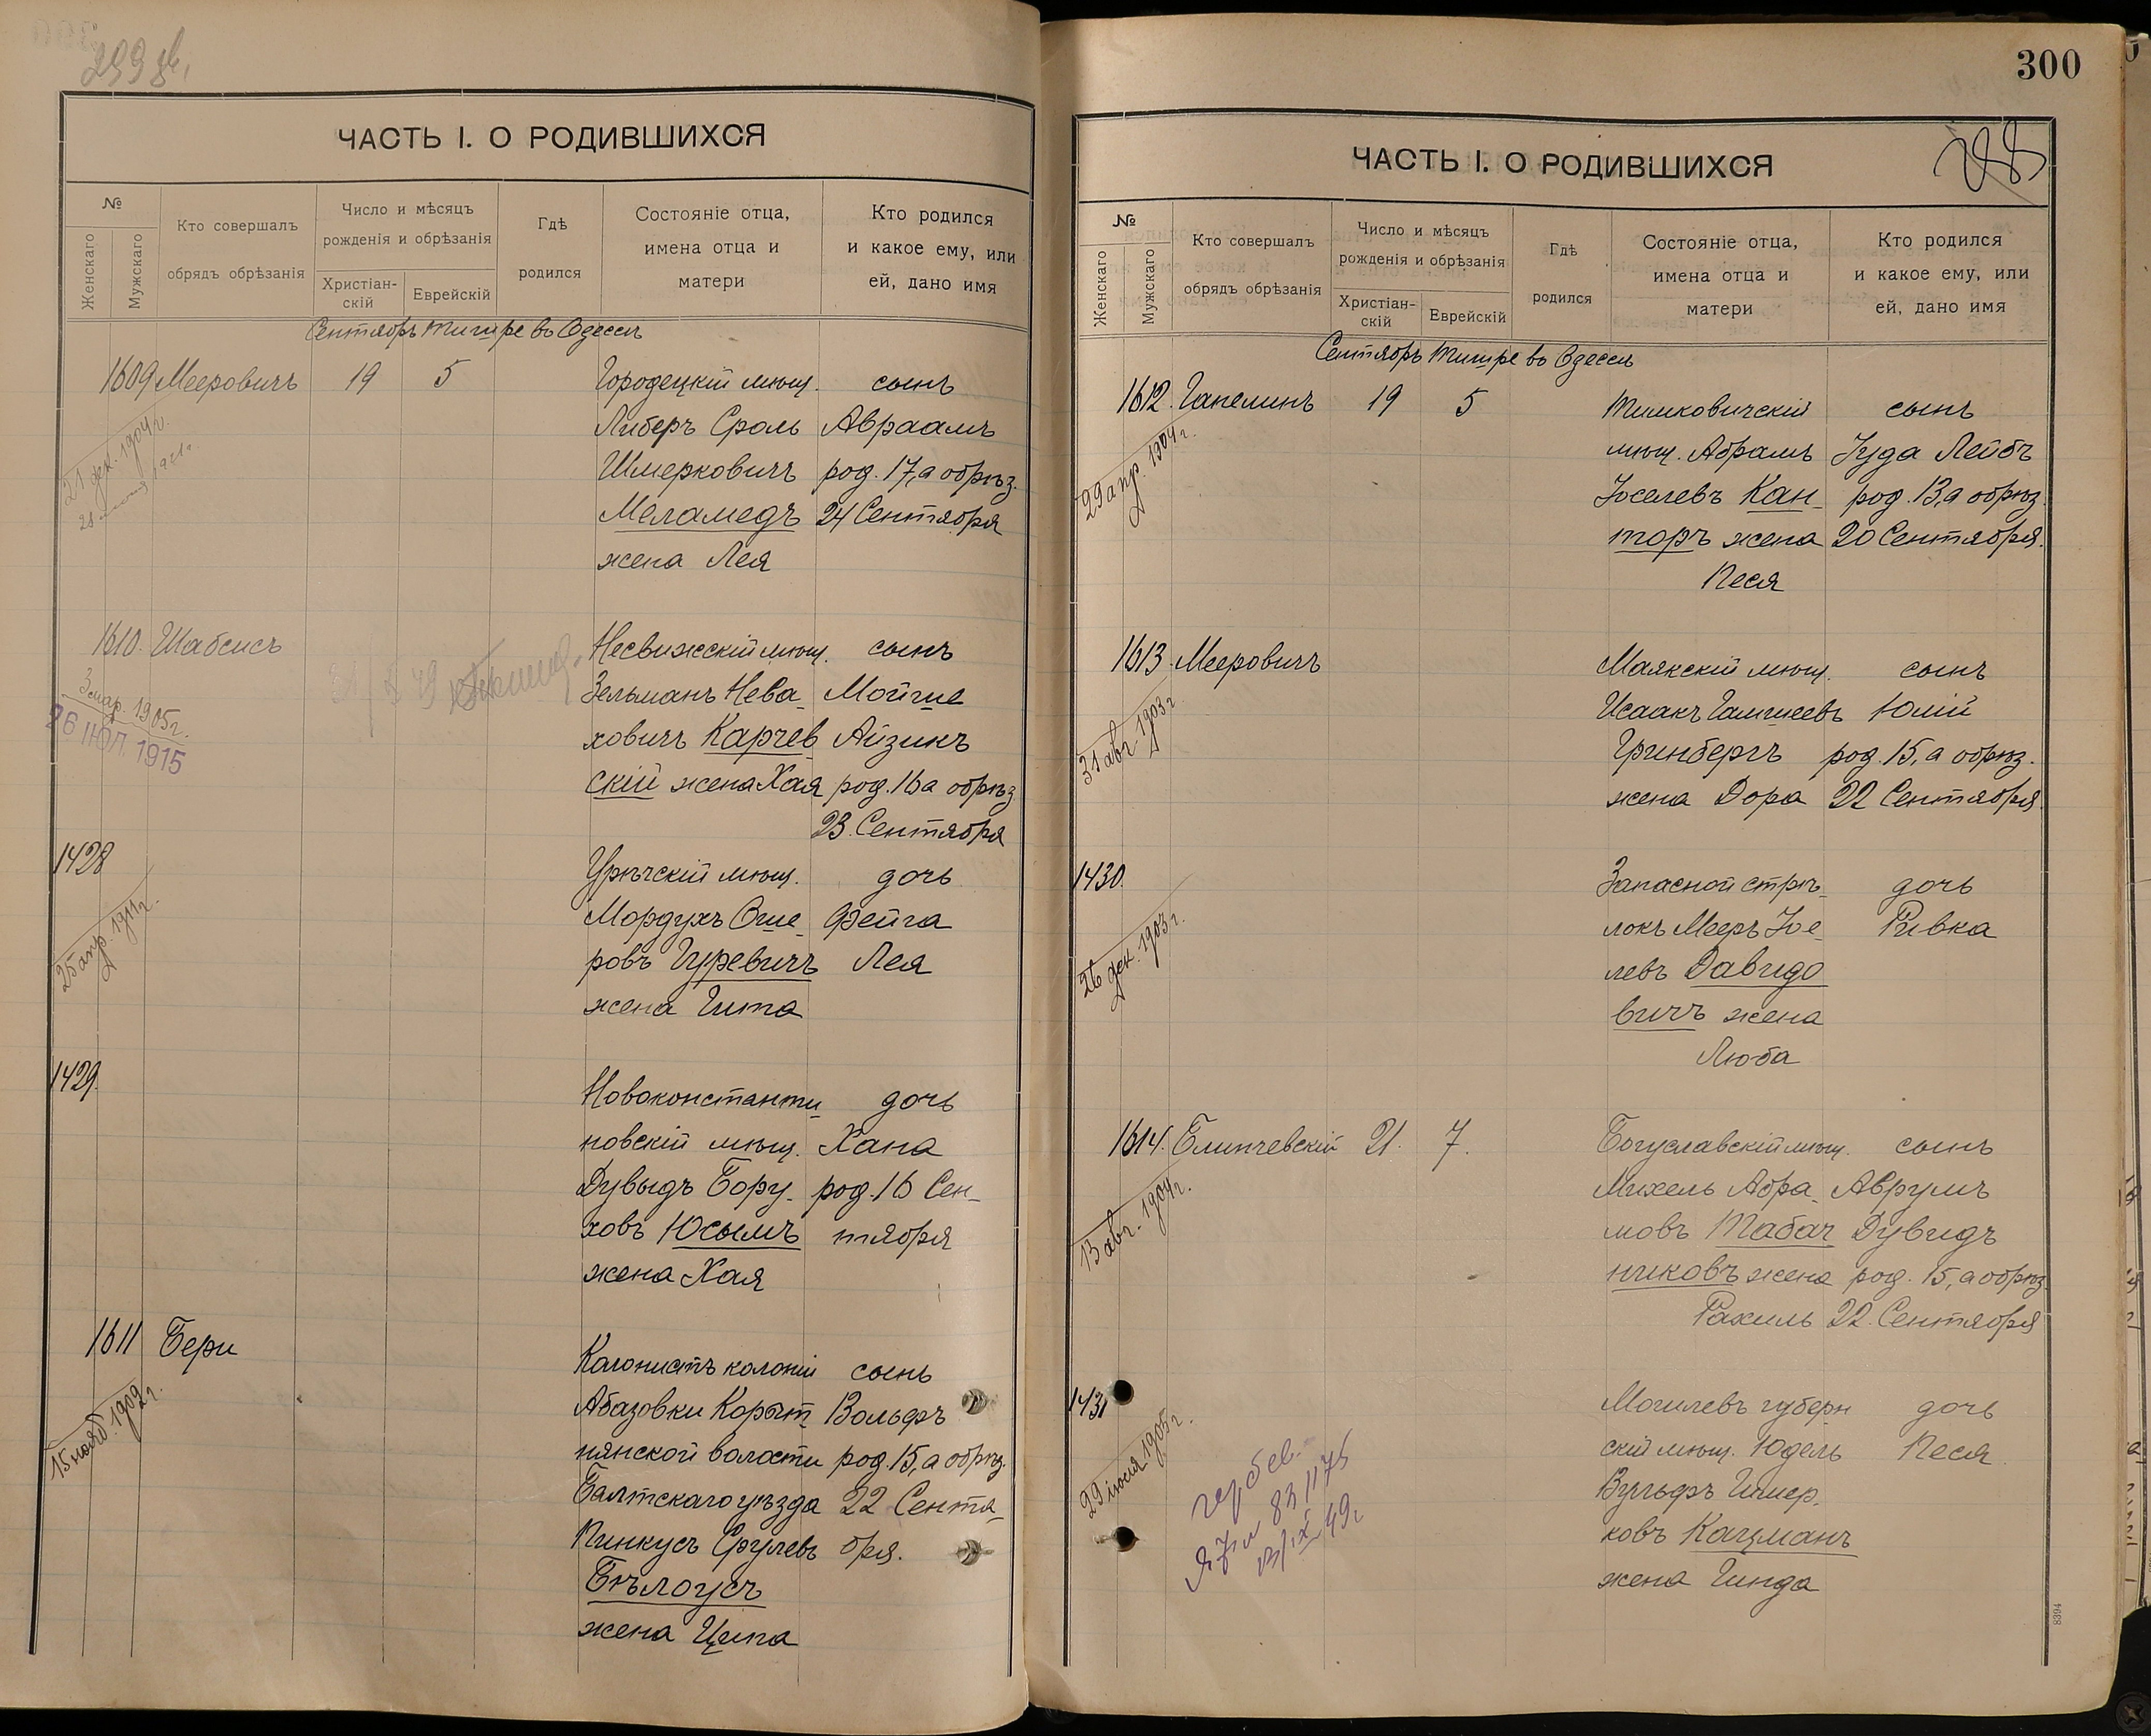 299 об.
ЧАСТЬ I. О РОДИВШИХСЯ
№
Женскаго
Мужскаго
Кто совершалъ
обрядъ обрѣзанія
Число и мѣсяцъ
рожденія и обрѣзанія
Христіан-
скій
Еврейскій
Гдѣ
родился
Состояніе отца,
имена отца и
матери
Кто родился
и какое ему, или
ей, дано имя
Сентябрь Тишре въ Одессѣ
1609 Мееровичъ 19 5 Городецкій мѣщ. сынъ
Либеръ Сроль Авраамъ
Шмерковичъ род. 17, а обрѣз.
Меламедъ 24 Сентября
жена Лея
21 дек. 1904 г.
1610. Шабсисъ Несвижскій мѣщ. сынъ
Зельманъ Нева- Мойше
ховичъ Карчев Айзикъ
скій жена Хая род. 16 а обрѣз.
23 Сентября
3 мар. 1905 г.
26 ІЮЛ 1915
1428 Урѣчскій мѣщ. дочь
Мордухъ Оше- Фейга
ровъ Гуревичъ Лея
жена Гита
25 апр. 1911 г.
1429 Новоконстанти- дочь
новскій мѣщ. Хана
Дувыдъ Бору- род. 16 Сен-
ховъ Юсымъ тября
жена Хая
1611 Бери Колонистъ колоніи сынъ
Абазовки Корыт- Вольфъ
нянской волости род. 15, а обрѣз.
Балтскаго уѣзда 22 Сентя-
Пинкусъ Срулевъ бря.
Бѣлоусъ
жена Ципа
15 нояб. 1909 г.
300
288
ЧАСТЬ I. О РОДИВШИХСЯ
№
Женскаго
Мужскаго
Кто совершалъ
обрядъ обрѣзанія
Число и мѣсяцъ
рожденія и обрѣзанія
Христіан-
скій
Еврейскій
Гдѣ
родился
Состояніе отца,
имена отца и
матери
Кто родился
и какое ему, или
ей, дано имя
Сентябрь Тишре въ Одессѣ
1612. Гапелинъ 19 5 Тимковичскій сынъ
мѣщ. Абрамъ Іуда Лейбъ
Іоселевъ Кан- род. 13, а обрѣз.
торъ жена 20 Сентября.
Песя
29 апр. 1904 г.
1613. Мееровичъ Маякскій мѣщ. сынъ
Исаакъ Гамшеевъ Юлій
Гринбергъ род. 15, а обрѣз.
жена Дора 22 Сентября.
31 авг. 1903 г.
1430. Запасной стрѣ- дочь
локъ Мееръ Іое- Ривка
левъ Давидо
вичъ жена
Люба
26 дек. 1903 г.
1614. Блинчевскій 21. 7. Богуславскій мѣщ. сынъ
Михель Абра- Аврумъ
мовъ Табач Дувидъ
никовъ жена род. 15, а обрѣз.
Рахиль 22. Сентября
13 авг. 1904 г.
1431 Могилевъ губерн дочь
скій мѣщ. Юдель Песя
Вульфъ Шмер-
ковъ Кацманъ
жена Гинда
29 іюля 1905 г.
8394